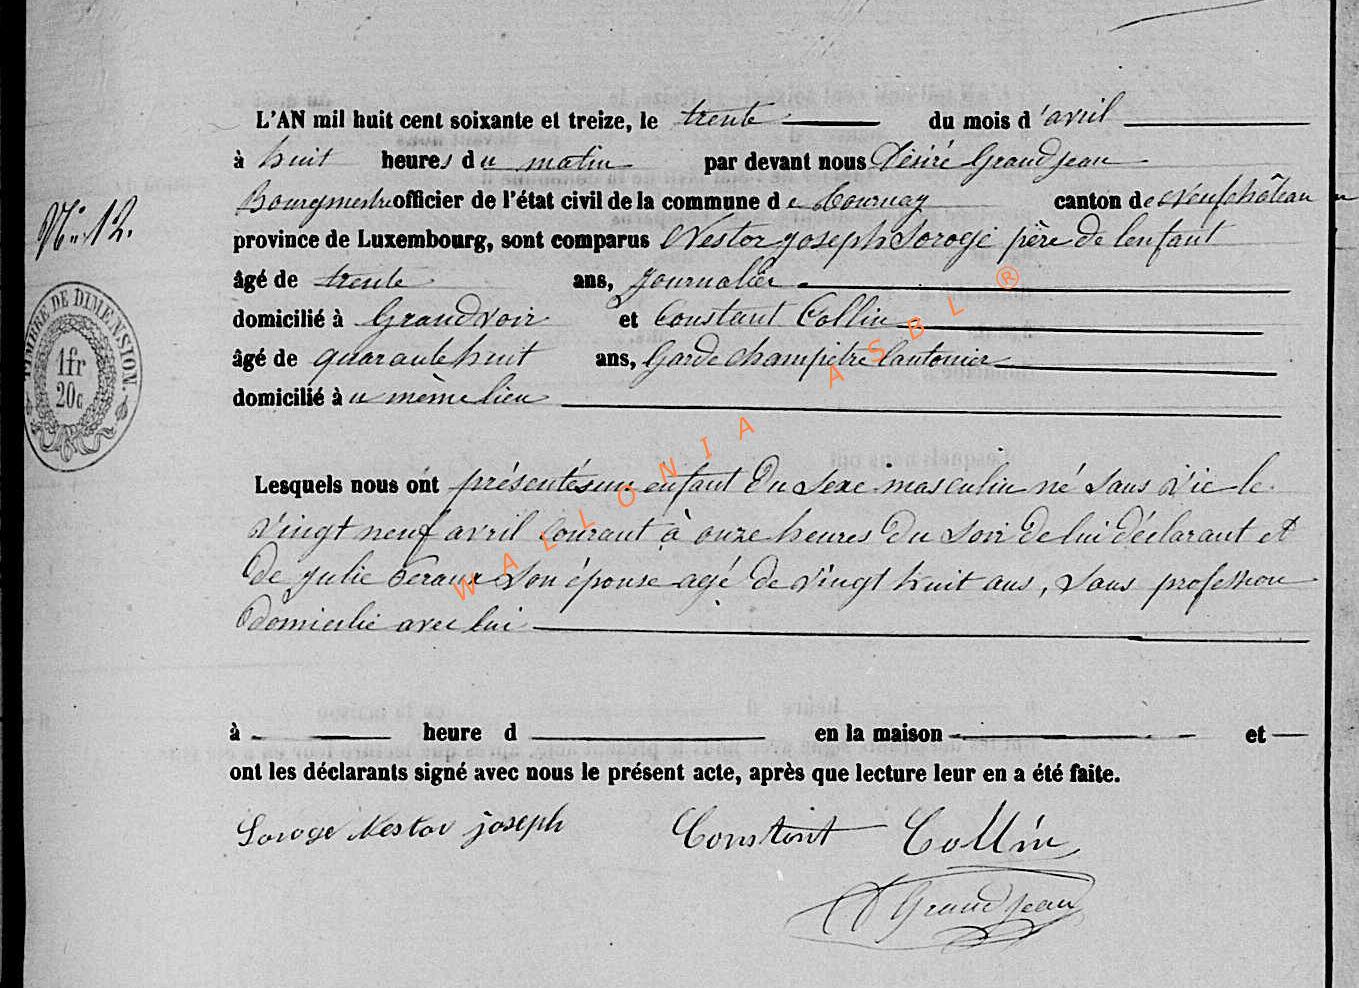 L'AN mil huit cent soixante et treize, le trente du mois d'avril
à huit heures du matin par devant nous Désiré Grandjean
Bourgmestre officier de l'état civil de la commune de Tournay canton de Neufchâteau
N° 12.
province de Luxembourg, sont comparus Nestor joseph Soroge père de lenfant
âgé de trente ans, journalier
domicilié à Grandvoir et Constant Collin
TIMBRE DE DIMENSION.
1fr
20c
âgé de quarante huit ans, Garde champêtre Cantonier
domicilié àu même lieu
Lesquels nous ont présentés un enfant du sexe masculin né sans vie le
vingt neuf avril courant à onze heures du soir de lui déclarant et
de julie son épouse agé de vingt huit ans, sans profession
domicilié avec lui
à heure d en la maison et
ont les déclarants signé avec nous le présent acte, après que lecture leur en a été faite.
Soroge Nestor joseph Constant Collin
D Grandjean
WALLONIA ASBL ®